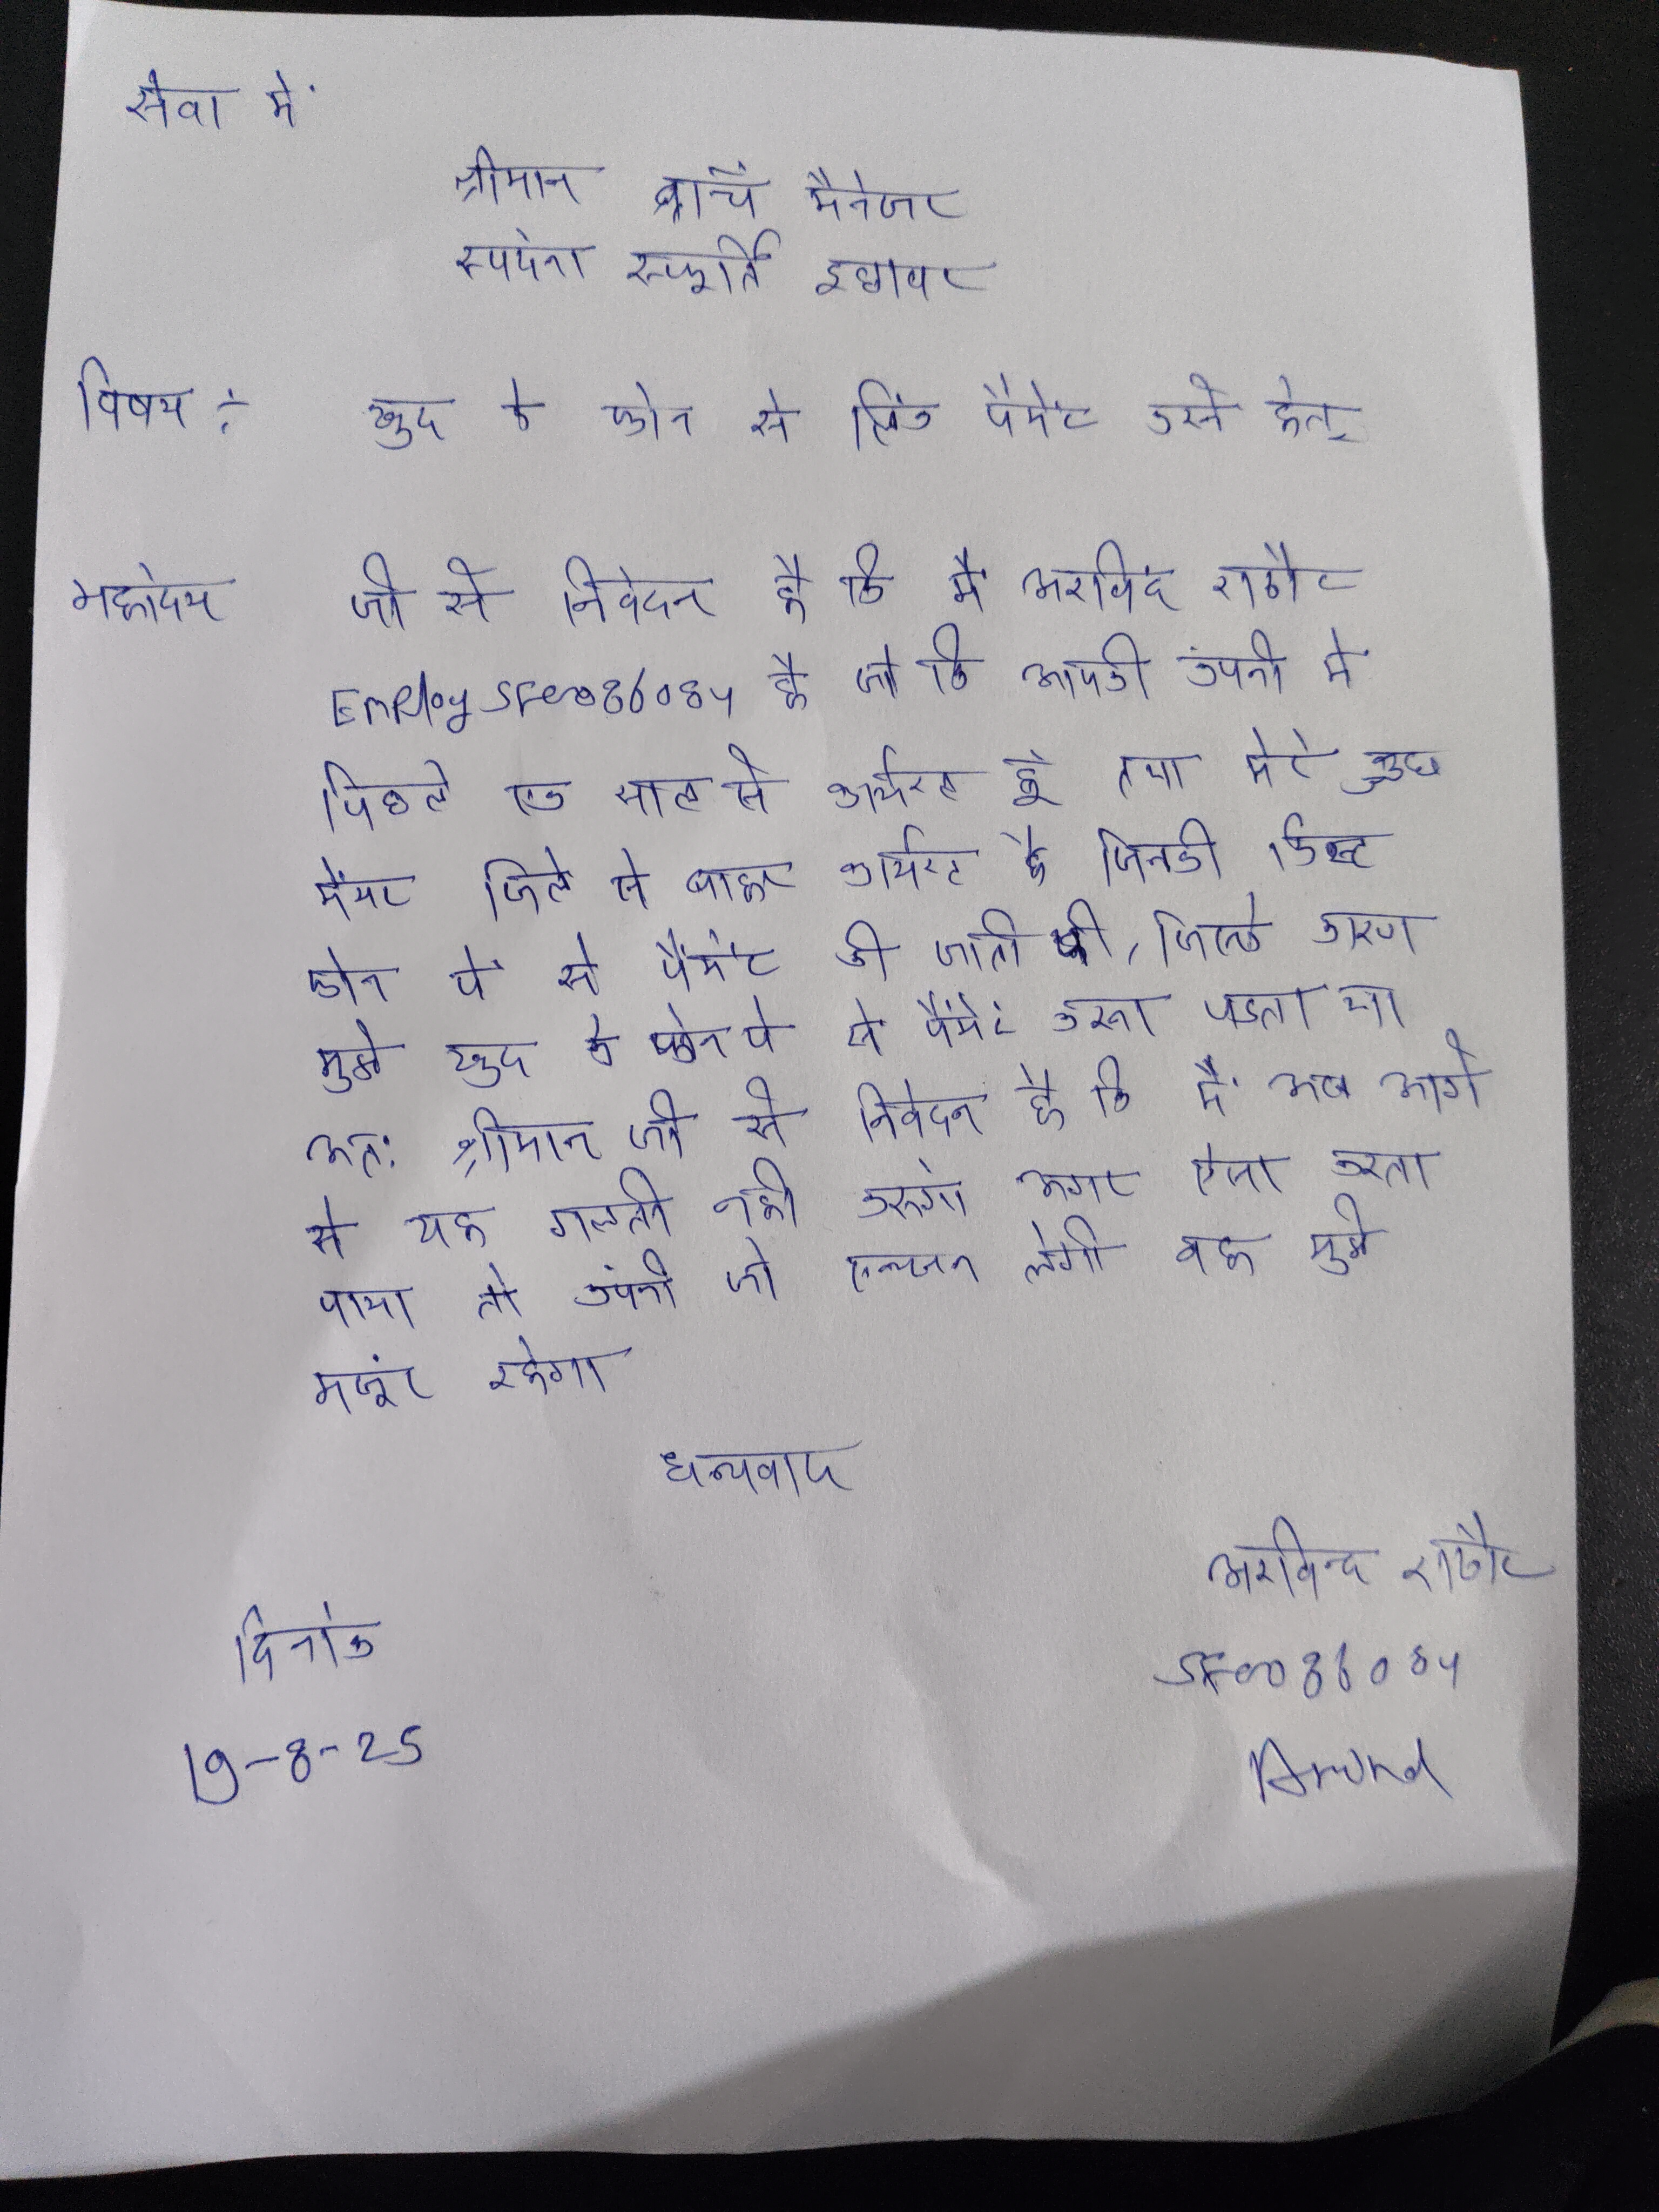 सेवा में
श्रीमान ब्रांच मैनेजर
स्पदंना स्फूर्ति इछावर
विषय :- खुद के फोन से लिंक पैमेंट करने हेतू
महोदय जी से निवेदन है कि मैं अरविंद राठौर
Employ SF0086084 है जो कि आपकी कंपनी मे
पिछले एक साल से कार्यरत हूं तथा मेरे कुछ
मेंम्बर जिले से बाहर कार्यरत है जिनकी किस्त
फोन पे से पैमेंट की जाती थी, जिसके कारण
मुझे खुद के फोन पे से पैमेंट करना पडता था
अतः श्रीमान जी से निवेदन है कि मैं अब आगे
से यह गलती नही करूंगा अगर ऐसा करता
पाया तो कंपनी जो एक्शन लेगी वह मुझे
मजूंर रहेगा
धन्यवाद
अरविन्द राठौर
दिनांक
SF0086084
19-8-25
Arvind